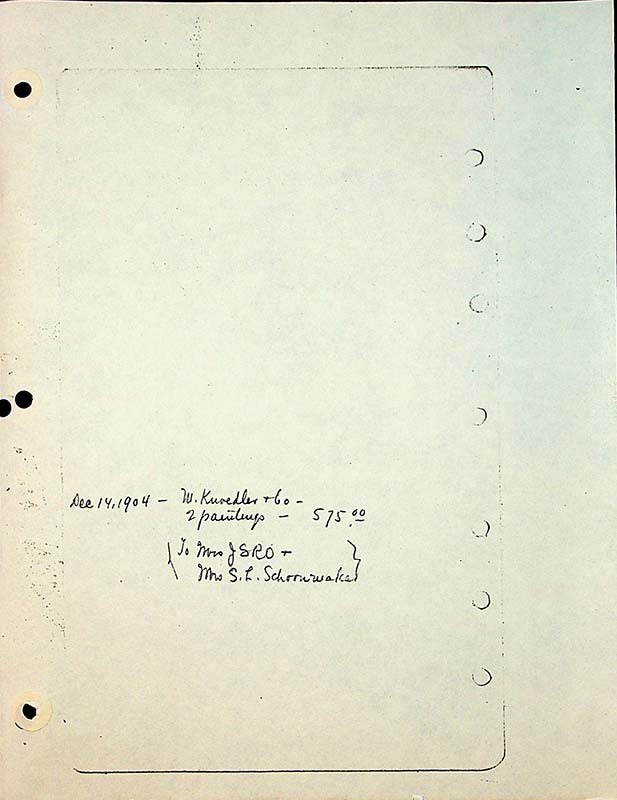 Dec 14, 1904 — M. Knoedler + Co —
2 paintings — 575.00
{ To Mrs JSRO + }
Mrs S. L. Schoonmaker